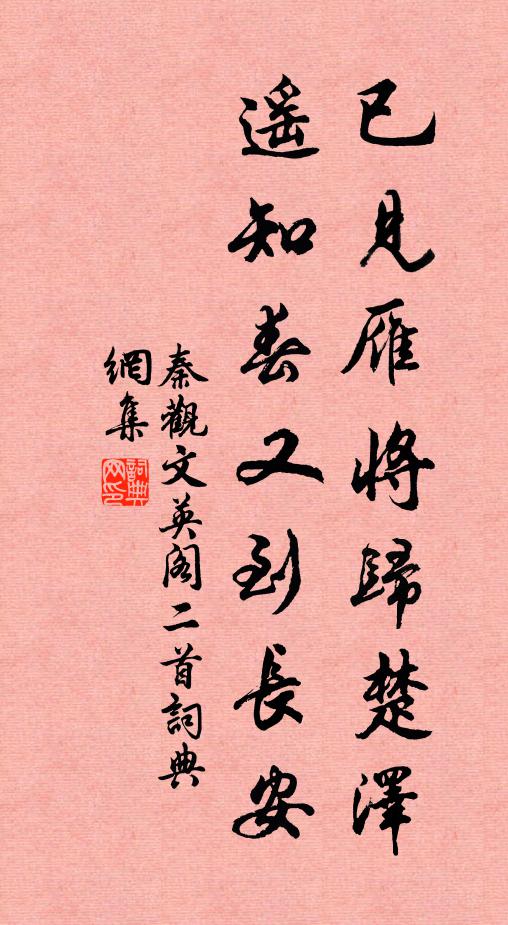 已見雁將歸楚澤
遥知春又到長安
秦觀文英阁二首詞典
網集
詞典
网印